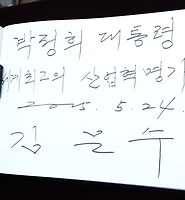 박정희 대통령
세계최고의 산업혁명가
2025. 5. 24.
김 문 수